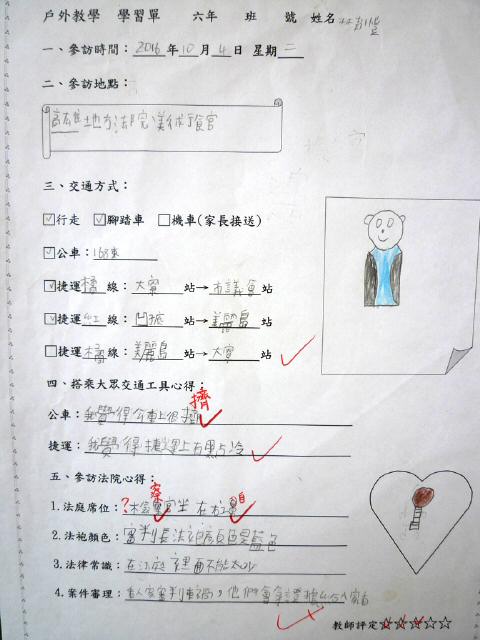 戶外教學 學習單 六年 班 號 姓名
一、參訪時間：2016年10月4日 星期二
二、參訪地點：
高雄土地方法院 美術館
三、交通方式：
行走 腳踏車 機車(家長接送)
公車：168東
捷運橘線：大寮站→市議會站
捷運紅線：凹子底站→美麗島站
捷運橘線：美麗島站→大寮站
四、搭乘大眾交通工具心得：
擠
公車：我覺得公車上很擠
捷運：我覺得捷運上有點冷
五、參訪法院心得：
察
1.法庭席位：？檢官坐在右
2.法袍顏色：審判長法袍顏色是藍色
3.法律常識：在法庭裡面不能太吵
4.案件審理：
教師評定☆☆☆☆☆